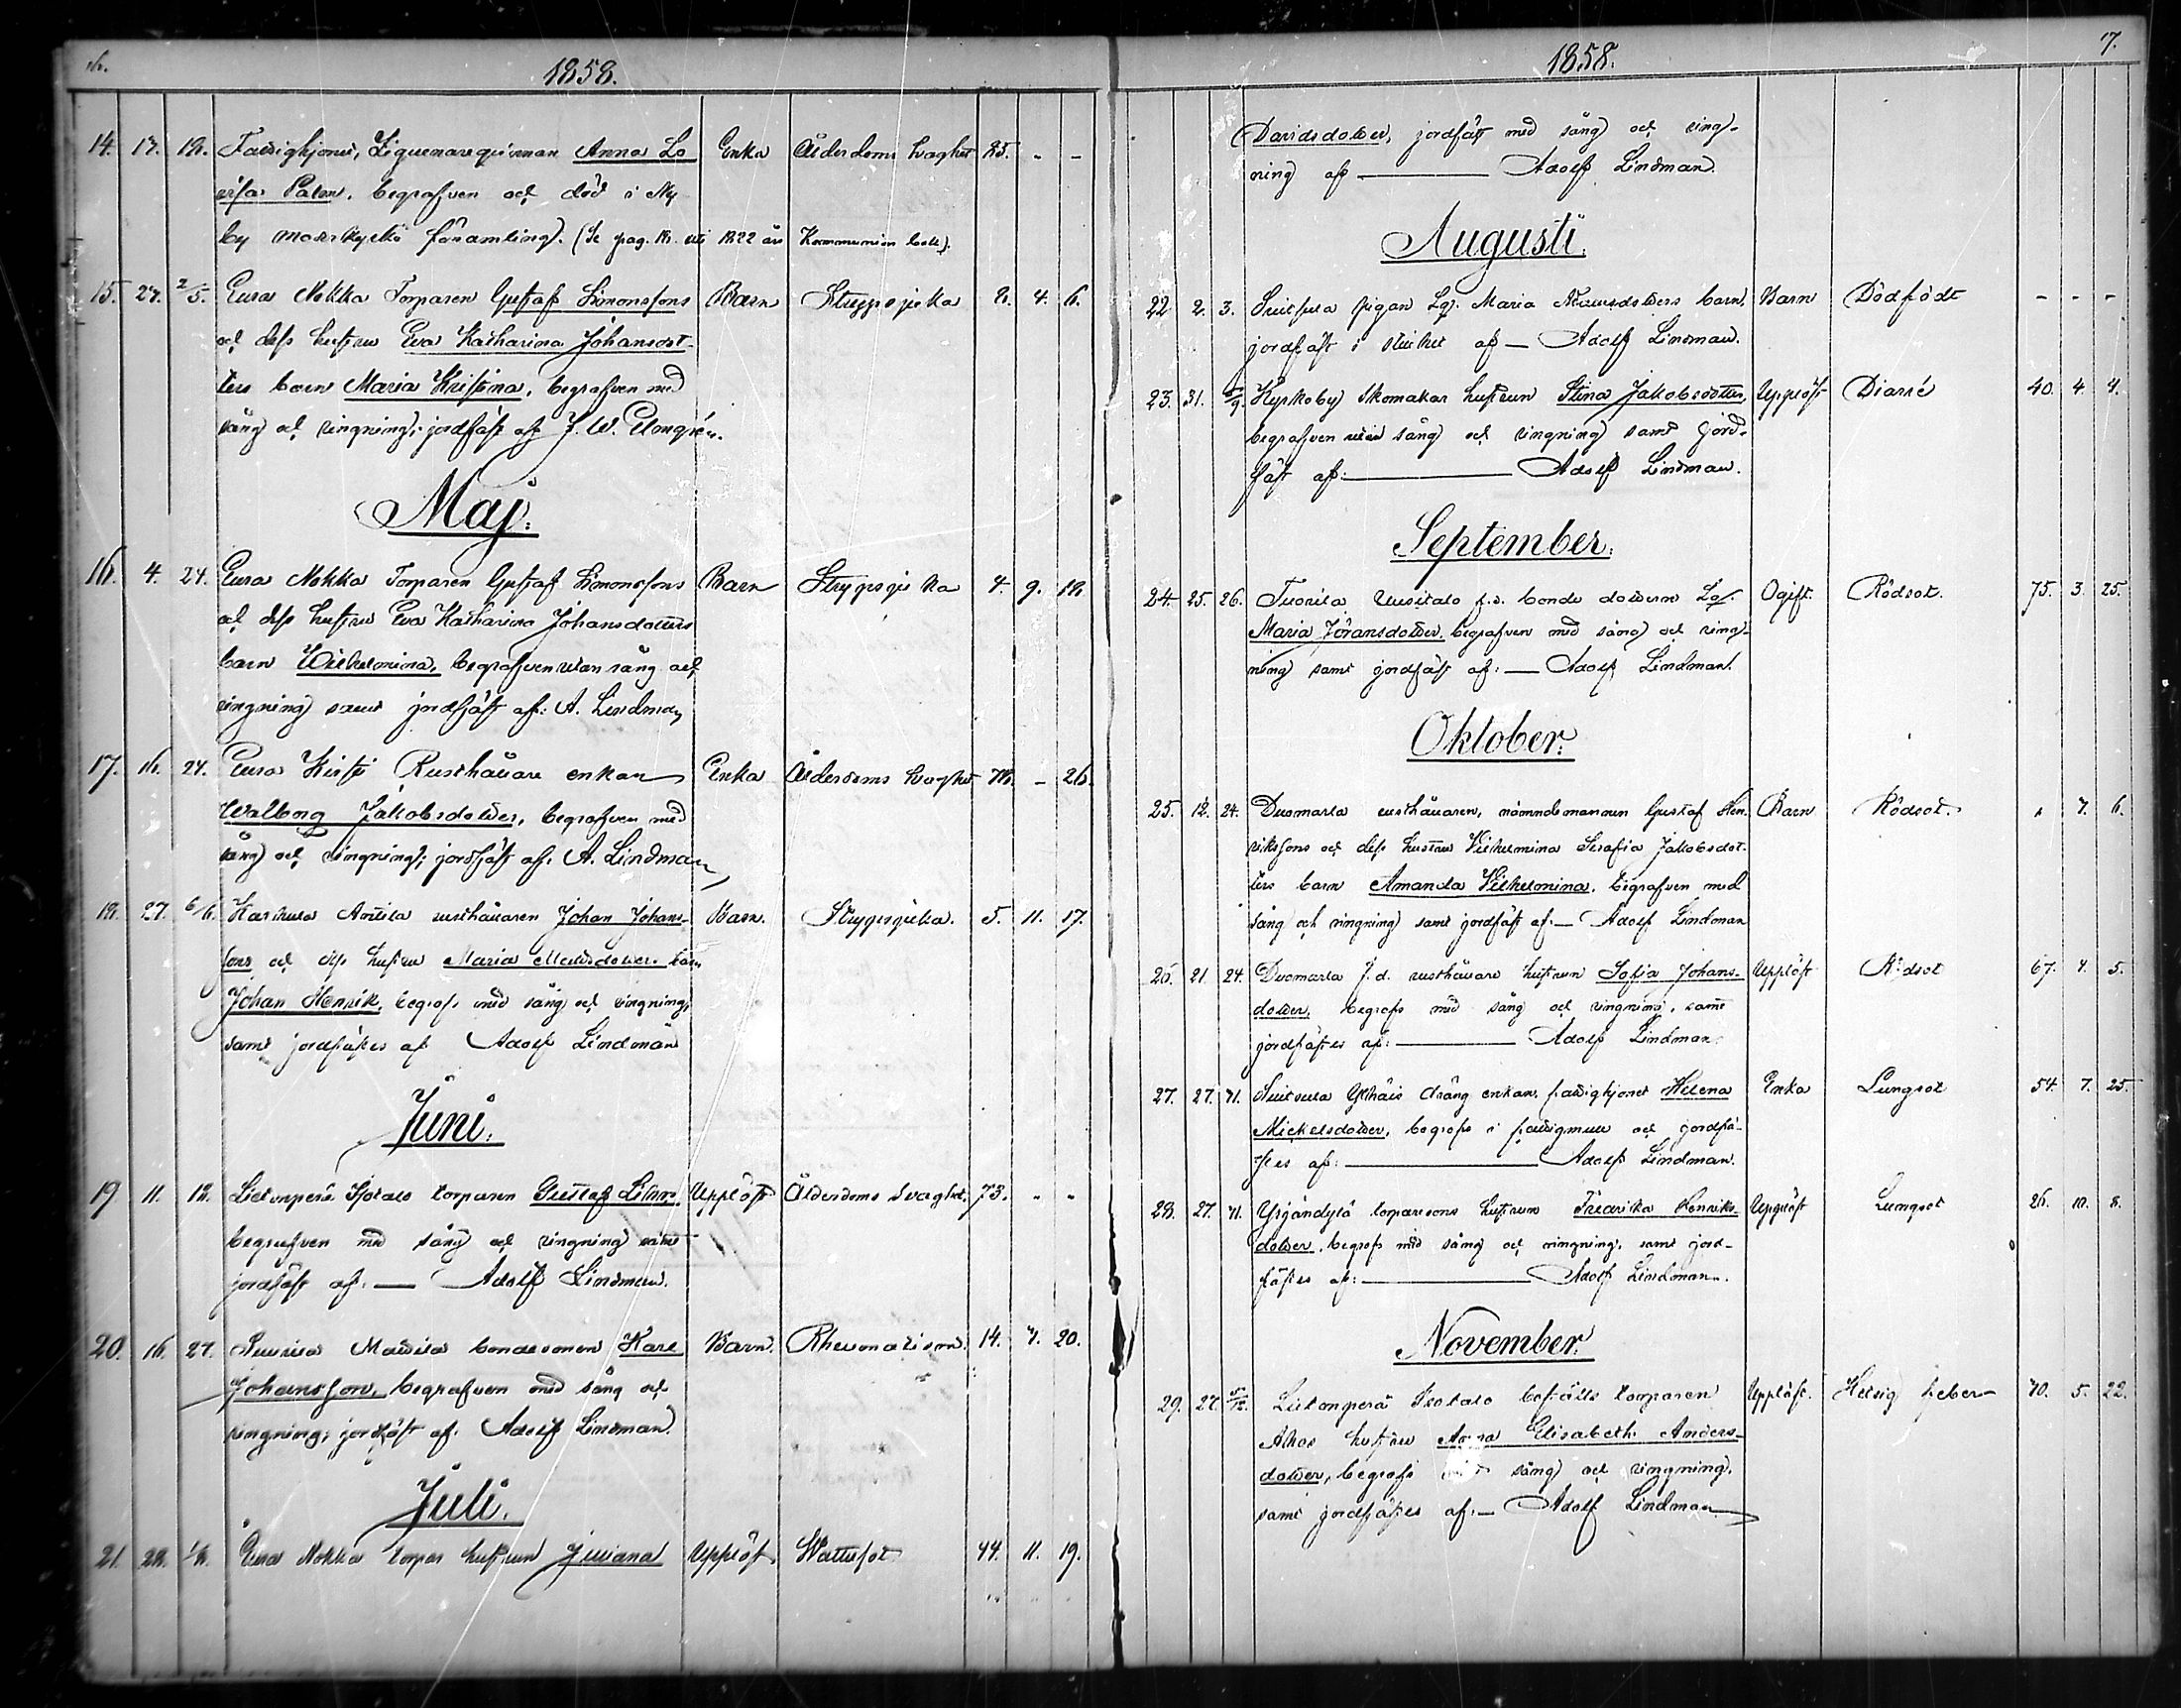 1858.
14. 17. 18. Fattighjonet, Ziguenarequinnan Anna Lo Enka Ålderdoms svaghet 85. - -
visa Palm, begrafven och död i Ny
by moderkyrko församling). (Se pag. 18. uti 1822 års Kommunion bok).
15. 27. 2/5. Eura Mokka Torparen Gustaf Simonssons Barn Strypsjuka 8. 4. 6.
och dess hustru Eva Katharina Johansdot-
ters barn Maria Kristina, begrafven med
sång och ringning; jordfäst af J. W.
Maj.
16. 4. 24. Eura Mokka Torparen Gustaf Simonssons Barn Strypsjuka 4. 9. 18.
och dess hustru Eva Katharina Johansdotters
barn Wilhelmina, begrafven utan sång och
ringning) samt jordfäst af: A. Lindman
17. 16. 24. Eura Kirsti Rusthållare enkan Enka Ålderdoms svaghet 78. - 26.
Walborg Jakobsdotter, begrafven med
sång) och ringning); jordfäst af. A. Lindman
18. 27. 6/6. Karhula Anttila rusthållaren Johan Johans- Barn. Strypsjuka. 5. 11. 17.
sons och dess hustru Maria Mattsdotters barn
Johan Henrik, begrofs med sång och ringning,
samt jordfästes af Adolf Lindman
Juni.
19 11. 12. Lietonperä torparen Gustaf Upplöst Ålderdoms svaghet. 73. - -
begrafven med sång och ringning) samt
jordfäst af: — Adolf Lindman.
20. 16. 27. Mattila bondesonen Karl Barn. Rheumatism. 14. 7. 20.
Johansson, begrafven med sång och
ringning; jordfäst af. Adolf Lindman.
Juli.
21. 28. 1/8. Eura Mokka torpar hustrun Juliana Upplöst Wattusot 44. 11. 19.
1858. 7.
Davidsdotter, jordfäst med sång) och ring)-
ning) af — Adolf Lindman.
Augusti.
22 2. 3. Suitsula pigan Lof. Maria barn, Barn Dödfödt - - -
jordfäst i stillhet af — Adolf Lindman.
23. 31. 5/9. Kyrkoby) Skomakar hustrun Stina Jakobsdotter, Upplöst Diarré 40. 4. 4.
begrafven utan sång) och ringning) samt jord-
fäst af: — Adolf Lindman.
September.
24. 25. 26. Tuorila Uusitalo f.d. bonde dottern Lof. Ogift. Rödsot. 75. 3. 25.
Maria Göransdotter, begrafven med sång) och ring)-
ning) samt jordfäst af: — Adolf Lindman.
Oktober.
25. 12. 24. Duomarla rusthållaren, nämndemannen Gustaf Hen- Barn Rödsot. - 7. 6.
rikssons och dess hustru Vilhelmina Serafia Jakobsdot-
ters barn Amanda Vilhelmina, begrafven med
sång och ringning) samt jordfäst af. — Adolf Lindman
26. 21. 24. Duomarla f.d. rusthållare hustrun Sofia Johans- Upplöst Rödsot 67. 4. 5.
dotter, begrofs med sång och ringning, samt
jordfästes af: — Adolf Lindman.
27. 27. 31. Suitsula Ylhäis dräng enkan, fattighjonet Helena Enka Lungsot 54. 7. 25.
Mickelsdotter, begrofs i stillhet och jordfä-
stes af: — Adolf Lindman.
28. 27. 31. Yrjändylä torparsons hustrun Fredrika Henriks- Upplöst Lungsot 26. 10. 8.
dotter, begrofs med sång) och ringning, samt jord-
fästes af: — Adolf Lindman.
November.
29. 27. 5/12. Lietonperä Isotalo torparen Upplöst. Hetsig feber 70. 5. 22.
hustru Anna Elisabeth Anders-
dotter, begrofs med sång) och ringning,
samt jordfästes af: — Adolf Lindman